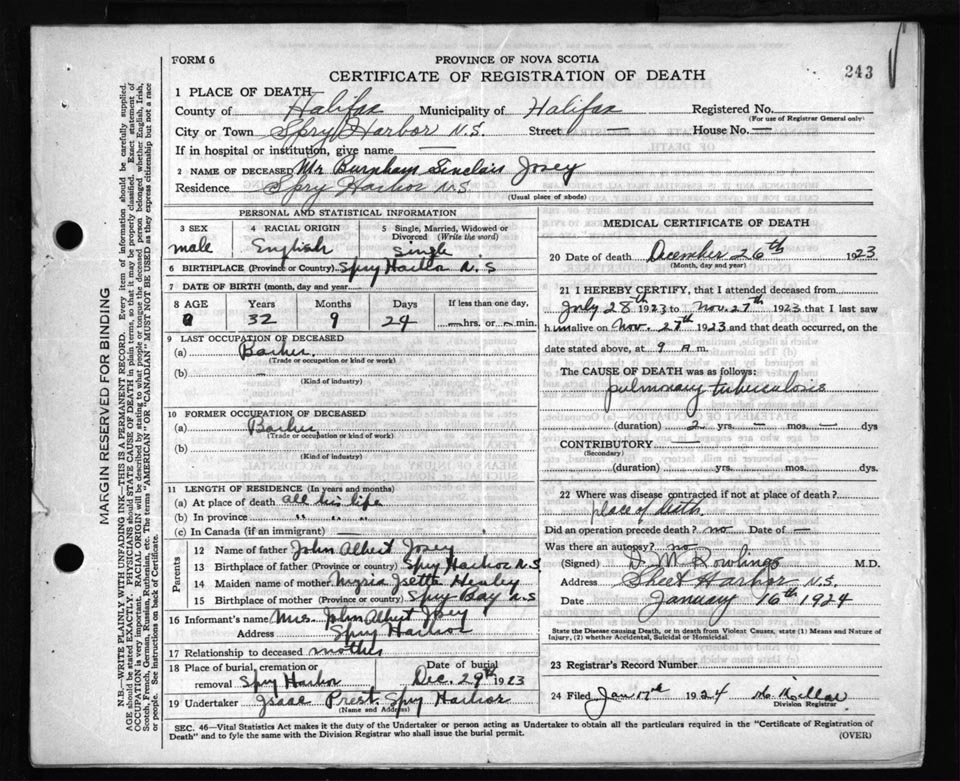 FORM 6
PROVINCE OF NOVA SCOTIA
CERTIFICATE OF REGISTRATION OF DEATH
243
1 PLACE OF DEATH
County of Halifax Municipality of Halifax Registered No.
(For use of Registrar General only)
City or Town Spry Harbor N.S. Street — House No. —
If in hospital or institution, give name —
2 NAME OF DECEASED Mr Burnham Sinclair Josey
Residence Spry Harbor N.S
(Usual place of abode)
PERSONAL AND STATISTICAL INFORMATION
3 SEX
male
4 RACIAL ORIGIN
English
5 Single, Married, Widowed or Divorced (Write the word)
Single
6 BIRTHPLACE (Province or Country) Spry Harbor N.S
7 DATE OF BIRTH (month, day and year)
8 AGE Years Months Days If less than one day,
32 9 24 — hrs. or — min.
9 LAST OCCUPATION OF DECEASED
(a) Barber
(Trade or occupation or kind or work)
(b) —
(Kind of industry)
10 FORMER OCCUPATION OF DECEASED
(a) Barber
(Trade or occupation or kind of work)
(b)
(Kind of industry)
11 LENGTH OF RESIDENCE (In years and months)
(a) At place of death all his life
(b) In province " " "
(c) In Canada (if an immigrant) —
Parents
12 Name of father John Albert Josey
13 Birthplace of father (Province or country) Spry Harbor N.S.
14 Maiden name of mother Myria Isetta Henley
15 Birthplace of mother (Province or country) Spry Bay N.S
16 Informant's name Mrs. John Albert Josey
Address Spry Harbor
17 Relationship to deceased mother
18 Place of burial, cremation or removal Spry Harbor
Date of burial Dec. 29th 1923
19 Undertaker Isaac Prest. Spry Harbor
(Name and Address)
MEDICAL CERTIFICATE OF DEATH
20 Date of death December 26th 1923
(Month, day and year)
21 I HEREBY CERTIFY, that I attended deceased from
July 28th 1923 to Nov. 27th 1923 that I last saw
him alive on Nov. 27th 1923 and that death occurred, on the
date stated above, at 9 A m.
The CAUSE OF DEATH was as follows:
pulmonary tuberculosis
(duration) 2 yrs. — mos. — dys
CONTRIBUTORY —
(Secondary)
(duration) yrs. mos. dys.
22 Where was disease contracted if not at place of death?
place of death.
Did an operation precede death? no Date of —
Was there an autopsy? no
(Signed) D. M Rowlings M.D.
Address Sheet Harbor N.S.
Date January 16th 1924
State the Disease causing Death, or in death from Violent Causes, state (1) Means and Nature of Injury, (2) whether Accidental, Suicidal or Homicidal.
23 Registrar's Record Number
24 Filed Jan 17th 1924
Division Registrar
SEC. 46—Vital Statistics Act makes it the duty of the Undertaker or person acting as Undertaker to obtain all the particulars required in the "Certificate of Registration of
Death" and to fyle the same with the Division Registrar who shall issue the burial permit.
(OVER)
MARGIN RESERVED FOR BINDING
N.B.—WRITE PLAINLY WITH UNFADING INK—THIS IS A PERMANENT RECORD. Every item of information should be carefully supplied.
AGE should be stated EXACTLY. PHYSICIANS should STATE CAUSE OF DEATH in plain terms, so that it may be properly classified. Exact statement of
OCCUPATION is very important. RACIAL ORIGIN will be described by stating to what people or tongue the deceased person belonged whether English, Irish,
Scotch, French, German, Russian, Ruthenian, etc. The terms "AMERICAN" OR "CANADIAN" MUST NOT BE USED as they express citizenship but not a race
or people. See instructions on back of Certificate.